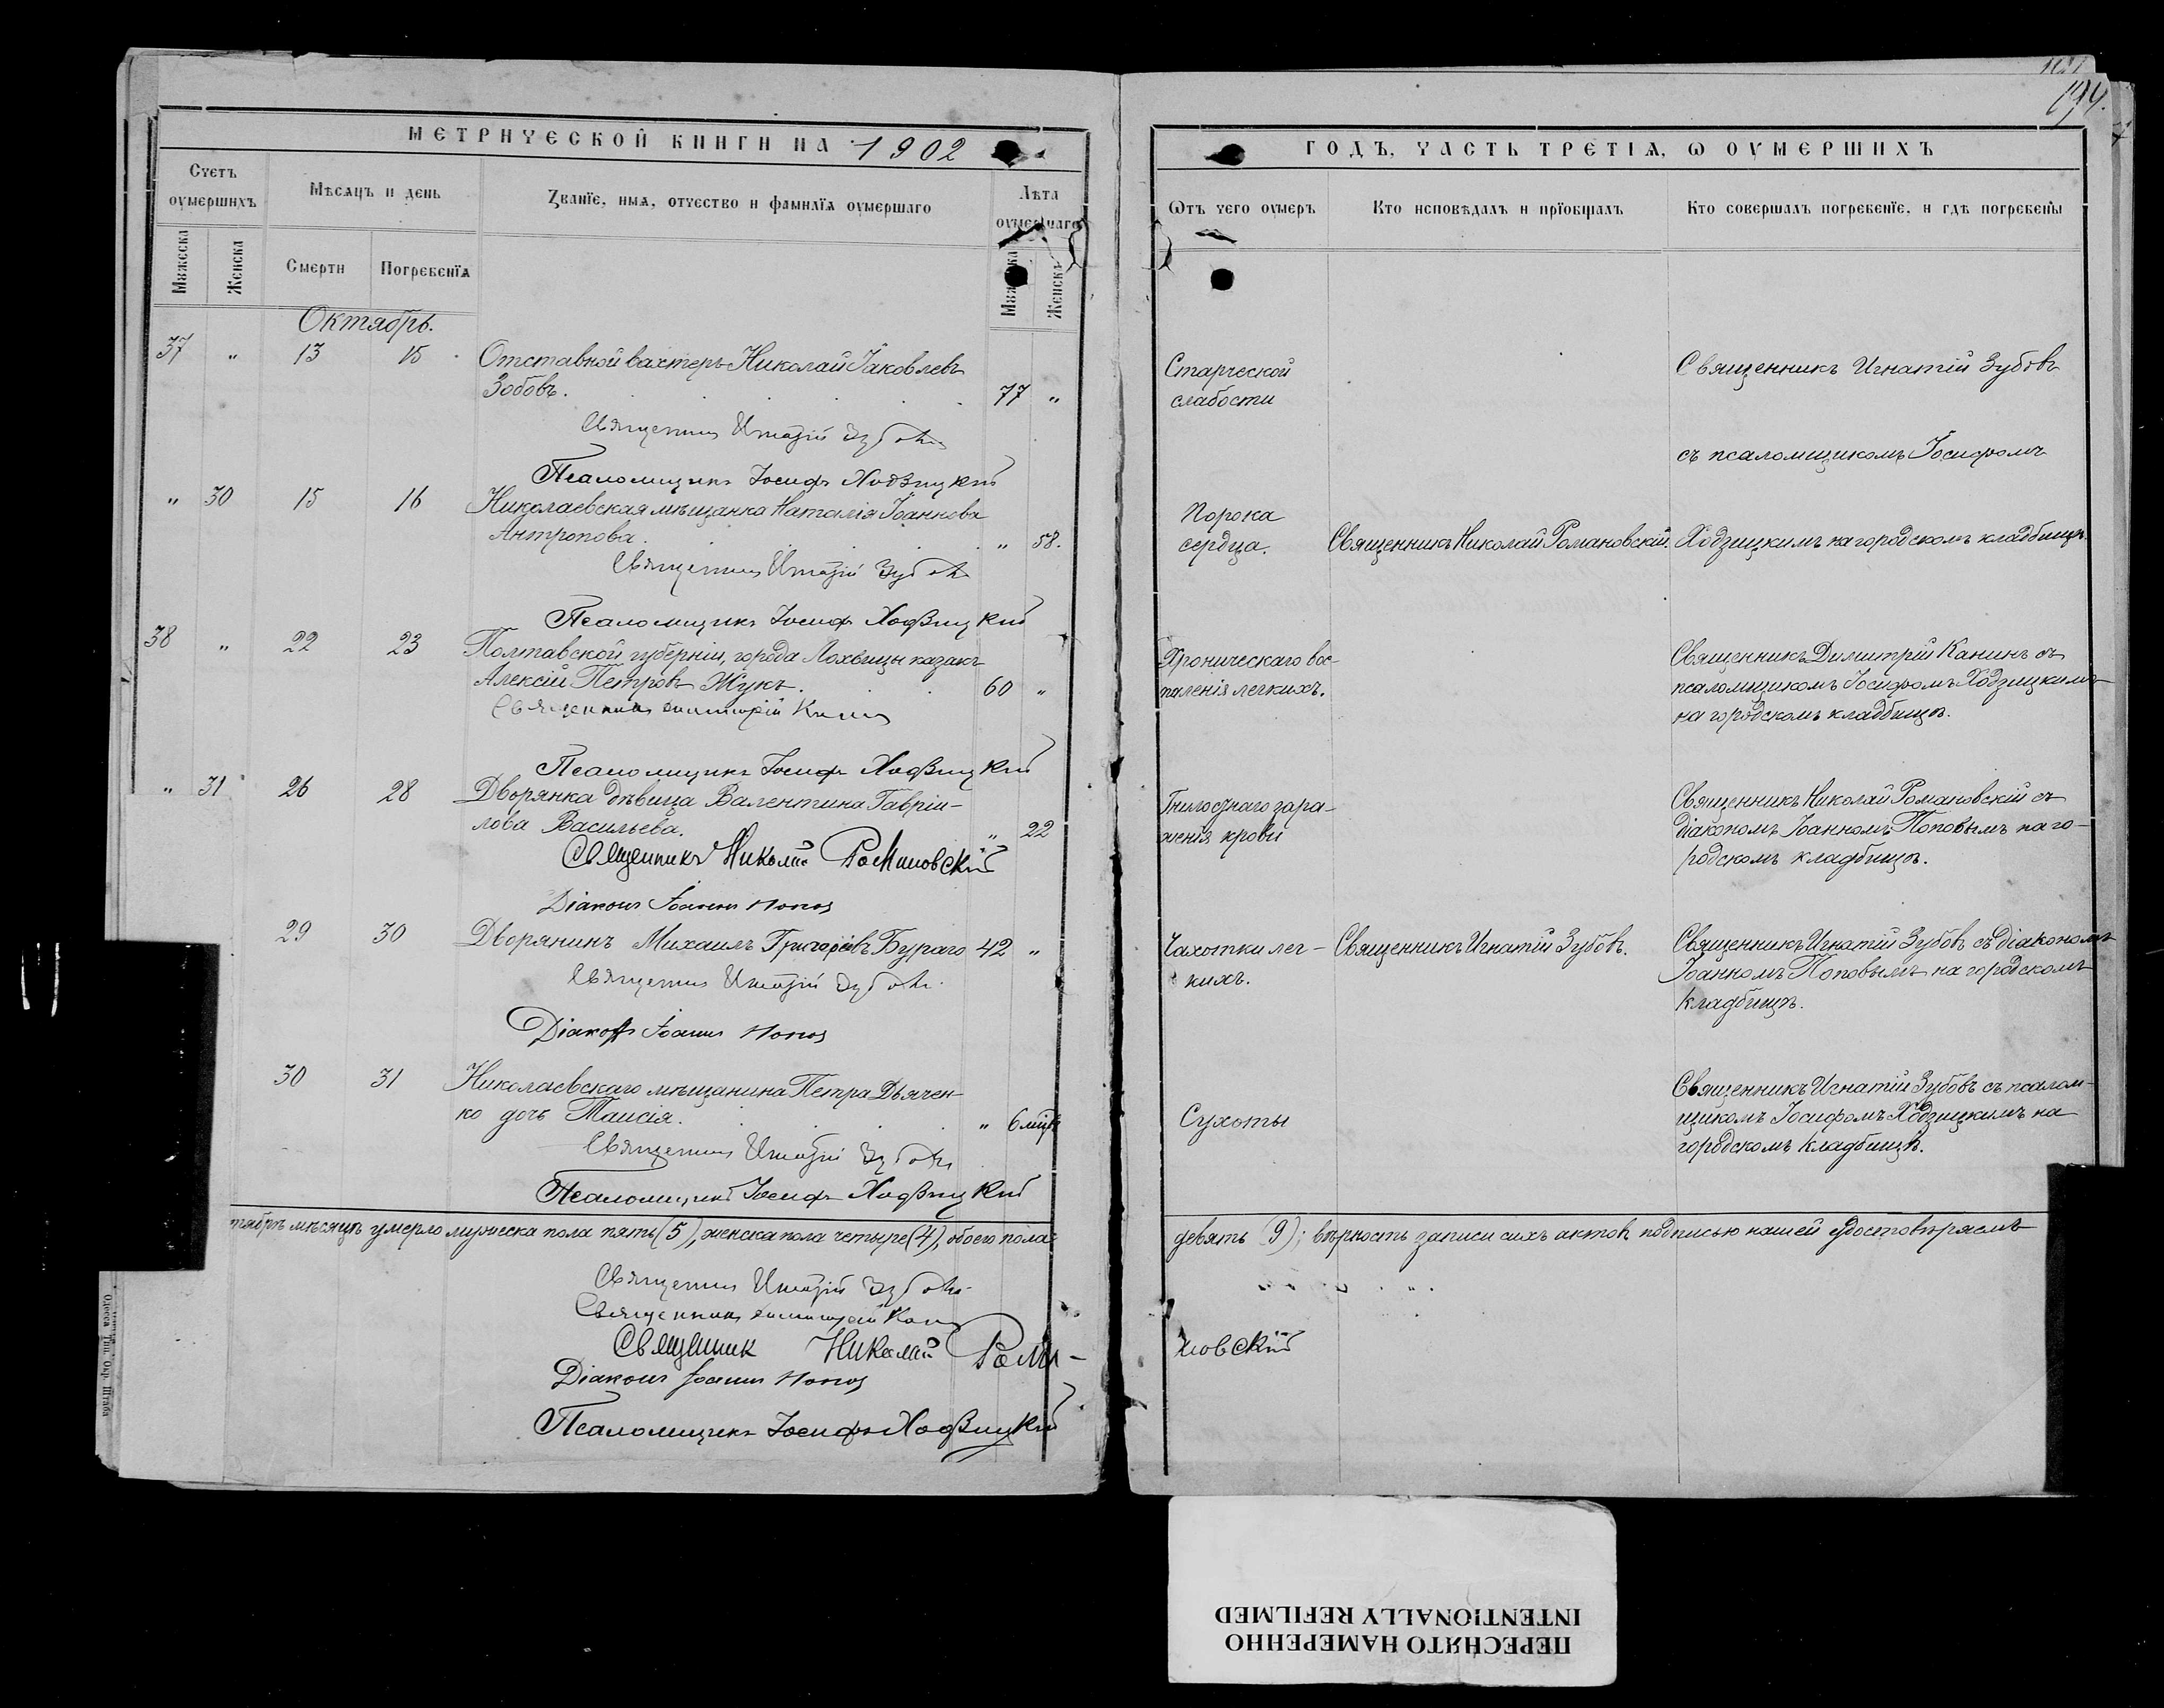 194.
МЕТРИЧЕСКОЙ КНИГИ НА 1902
ГОДЪ, ЧАСТЬ ТРЕТІѦ, Ѡ ОУМЕРШИХЪ
Счетъ оумершихъ
Мѣсяцъ и день
Званїе, имѧ, отчество и фамилїѧ оумершаго
Лѣта оумершаго
Мꙋжеска
Женска
Смерти
Погребенїѧ
Мꙋжеска
Женска
Ѿтъ чего оумеръ
Кто исповѣдалъ и прїобщалъ
Кто совершалъ погребенїе, и гдѣ погребены
Октябрь.
37 " 13 15 Отставной вахтеръ Николай Іаковлевъ
Зобовъ. 77 "
Старческой
слабости
Священникъ Игнатій Зубовъ
съ псаломщикомъ Іосифомъ
Священникъ Игнатій Зубовъ
Псаломщикъ Іосифъ Ходзицкій
" 30 15 16 Николаевская мѣщанка Наталія Іоаннова
Антропова. " 58.
Порока
сердца.
Священникъ Николай Романовскій.
Ходзицкимъ на городскомъ кладбищѣ.
Священникъ Игнатій Зубовъ
Псаломщикъ Іосифъ Ходзицкій
38 " 22 23 Полтавской губерніи, города Лохвицы казакъ
Алексій Петровъ Жукъ. 60 "
Хроническаго вос-
паленія легкихъ.
Священникъ Димитрій Канинъ съ
псаломщикомъ Іосифомъ Ходзицкимъ
на городскомъ кладбищѣ.
Священникъ Димитрій Канинъ
Псаломщикъ Іосифъ Ходзицкій
" 31 26 28 Дворянка дѣвица Валентина Гавріи-
лова Васильева. " 22
Гнилостнаго зара-
женія крови
Священникъ Николай Романовскій съ
діакономъ Іоанномъ Поповымъ на го-
родскомъ кладбищѣ.
Священникъ Николай Романовскій
Діаконъ Іоаннъ Поповъ
29 30 Дворянинъ Михаилъ Григоріевъ Бураго 42 "
Чахотки лег-
кихъ.
Священникъ Игнатій Зубовъ.
Священникъ Игнатій Зубовъ съ діакономъ
Іоанномъ Поповымъ на городскомъ
кладбищѣ.
Священникъ Игнатій Зубовъ.
Діаконъ Іоаннъ Поповъ
30 31 Николаевскаго мѣщанина Петра Дьячен-
ко дочь Таисія. " 6 мѣс.
Сухоты
Священникъ Игнатій Зубовъ съ псалом-
щикомъ Іосифомъ Ходзицкимъ на
городскомъ кладбищѣ.
Священникъ Игнатій Зубовъ
Псаломщикъ Іосифъ Ходзицкій
тябрѣ мѣсяцѣ умерло мужеска пола пять (5), женска пола четыре (4), обоего пола
девять (9); вѣрность записи сихъ актовъ подписью нашей удостовѣряемъ
Священникъ Игнатій Зубовъ
Священникъ Димитрій Канинъ
Священник Николай Рома-
новскій
Діаконъ Іоаннъ Поповъ
Псаломщикъ Іосифъ Ходзицкій
Одесса Тип. Окр. Штаба
ПЕРЕСНЯТО НАМЕРЕННО
INTENTIONALLY REFILMED